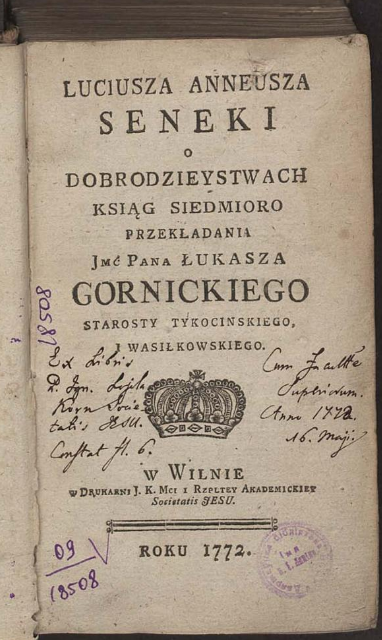 LUCIUSZA ANNEUSZA
SENEKI
O
DOBRODZIEYSTWACH
KSIĄG SIEDMIORO
PRZEKŁADANIA
JMĆ PANA ŁUKASZA
GORNICKIEGO
STAROSTY TYKOCINSKIEGO,
I WASIŁKOWSKIEGO.
Ex Libris
Korn Socie-
tatis JESU.
Constat fl. 6.
Cum
Anno 1772.
16. Maji.
W WILNIE
W DRUKARNI J. K. MCI I RZPLTEY AKADEMICKIEY
Societatis JESU.
ROKU 1772.
18508
09
18508